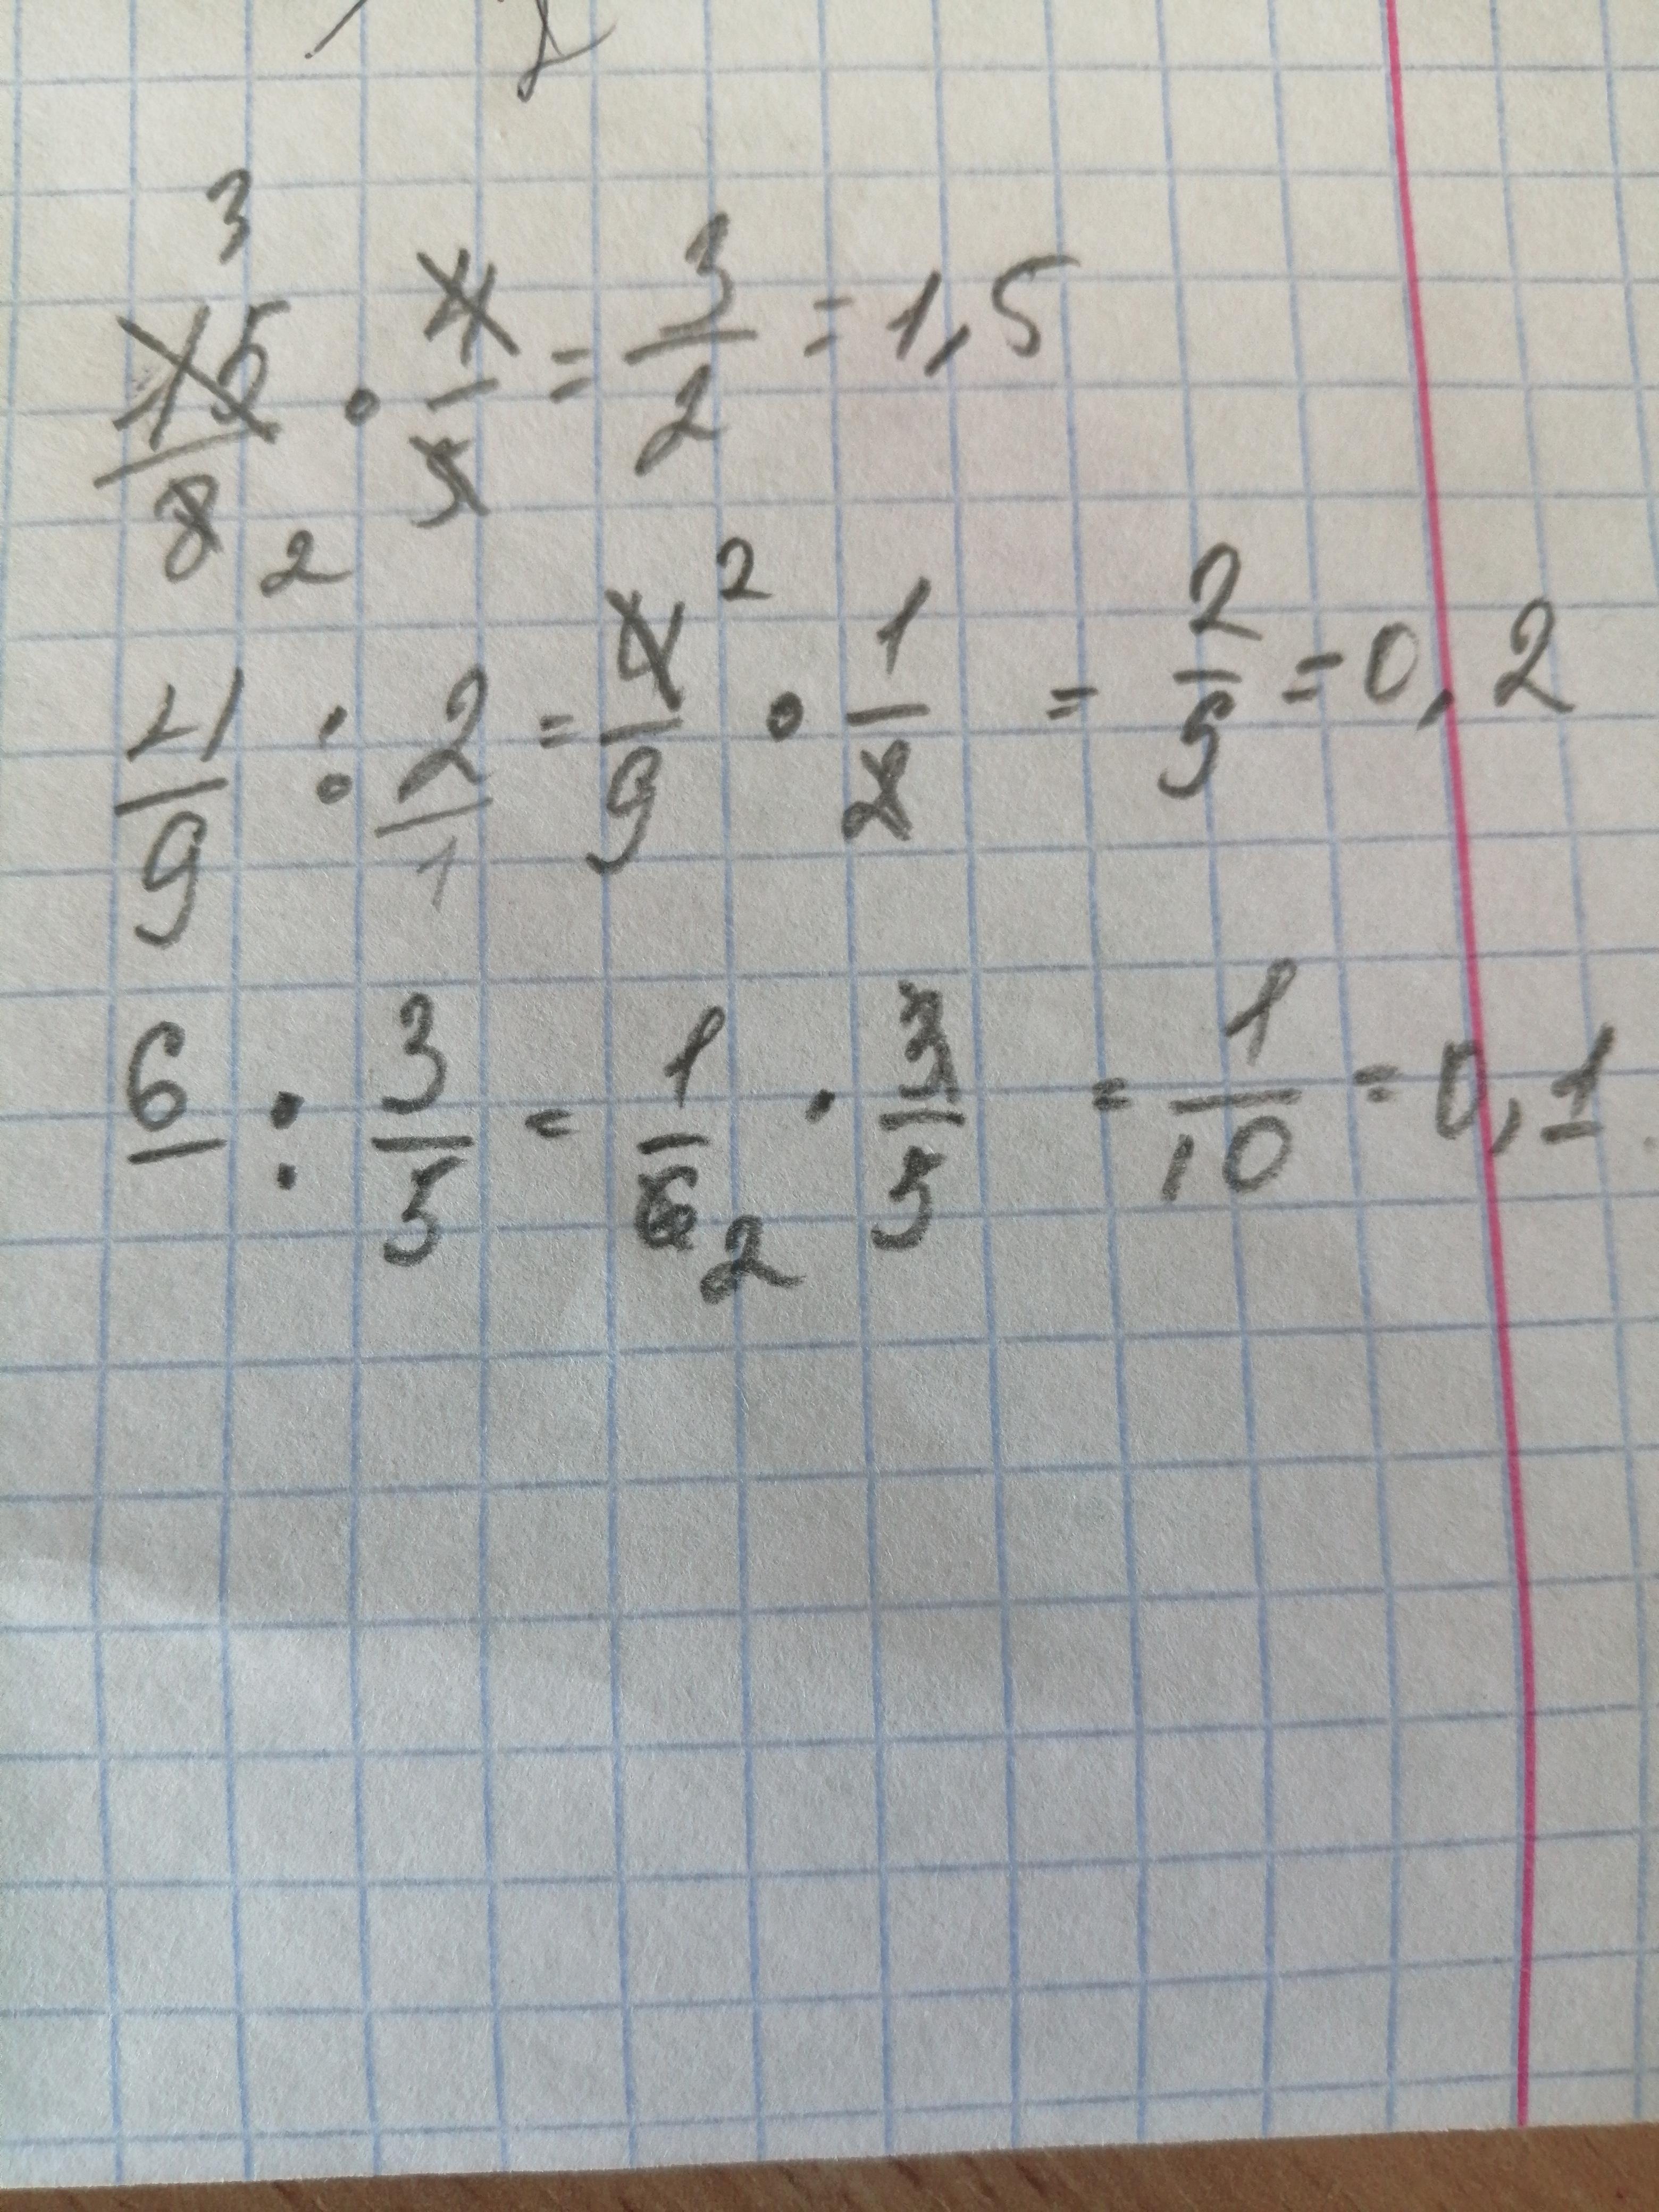 3
15/8 · 4/5 = 3/2 = 1,5
2
2
4/9 : 2/1 = 4/9 · 1/2 = 2/9 = 0,2
6/ : 3/5 = 1/6 · 3/5 = 1/10 = 0,1
2